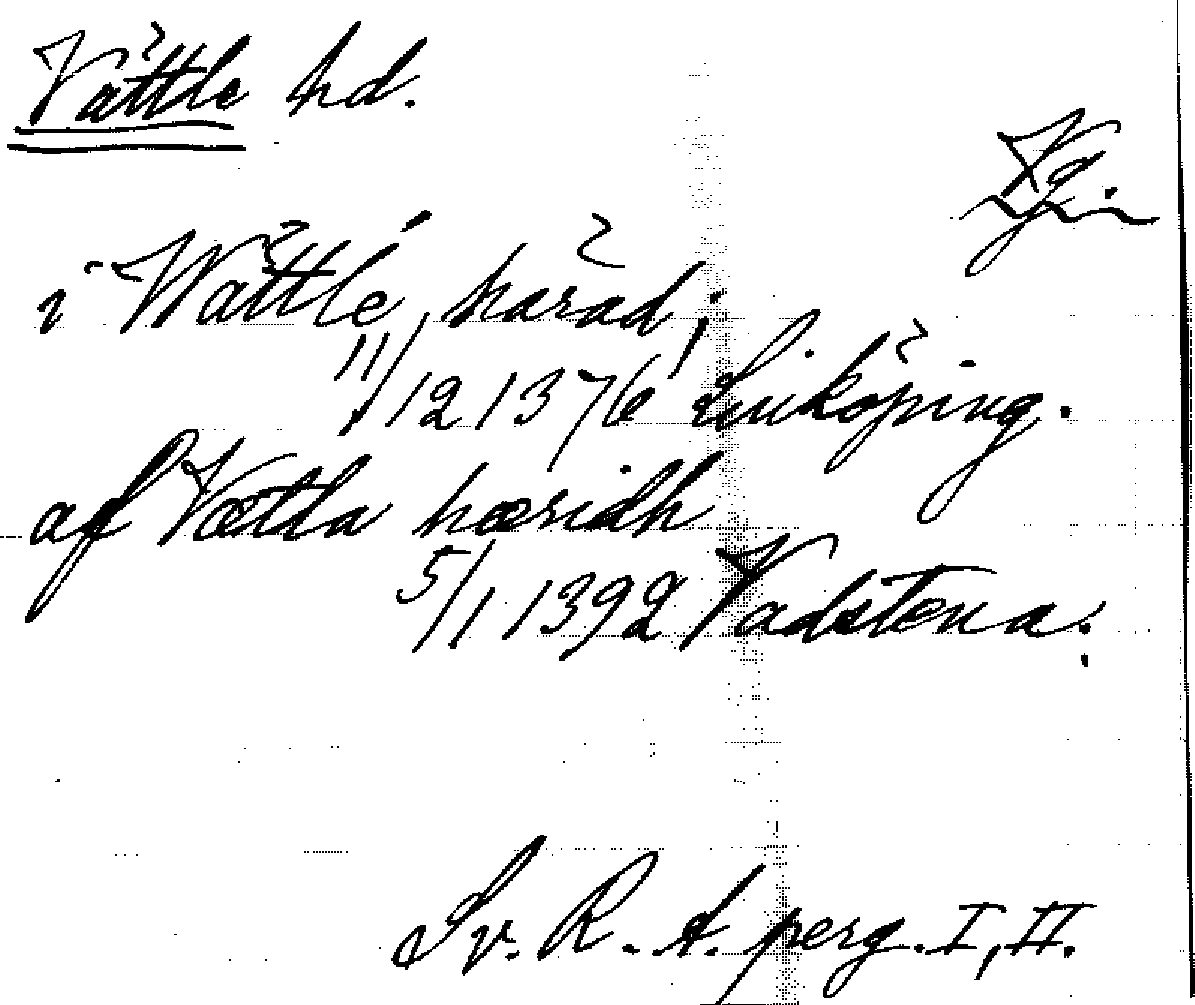 Vättle hd.
Vg.
i Wättlé häräd;
11/12 1376 Linköping.
af Vætla hæridh
5/1 1392 Vadstena.
Sv. R. A. perg. I, II.